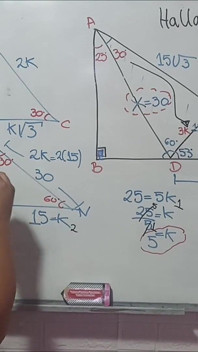 Halla
A
2K
25
30
15√3
30
C
K√3
x=30
3K
30
2K=2(15)
30
60
55
B
D
60
N
15=K₂
25=5K₁
25/5=K
5=K